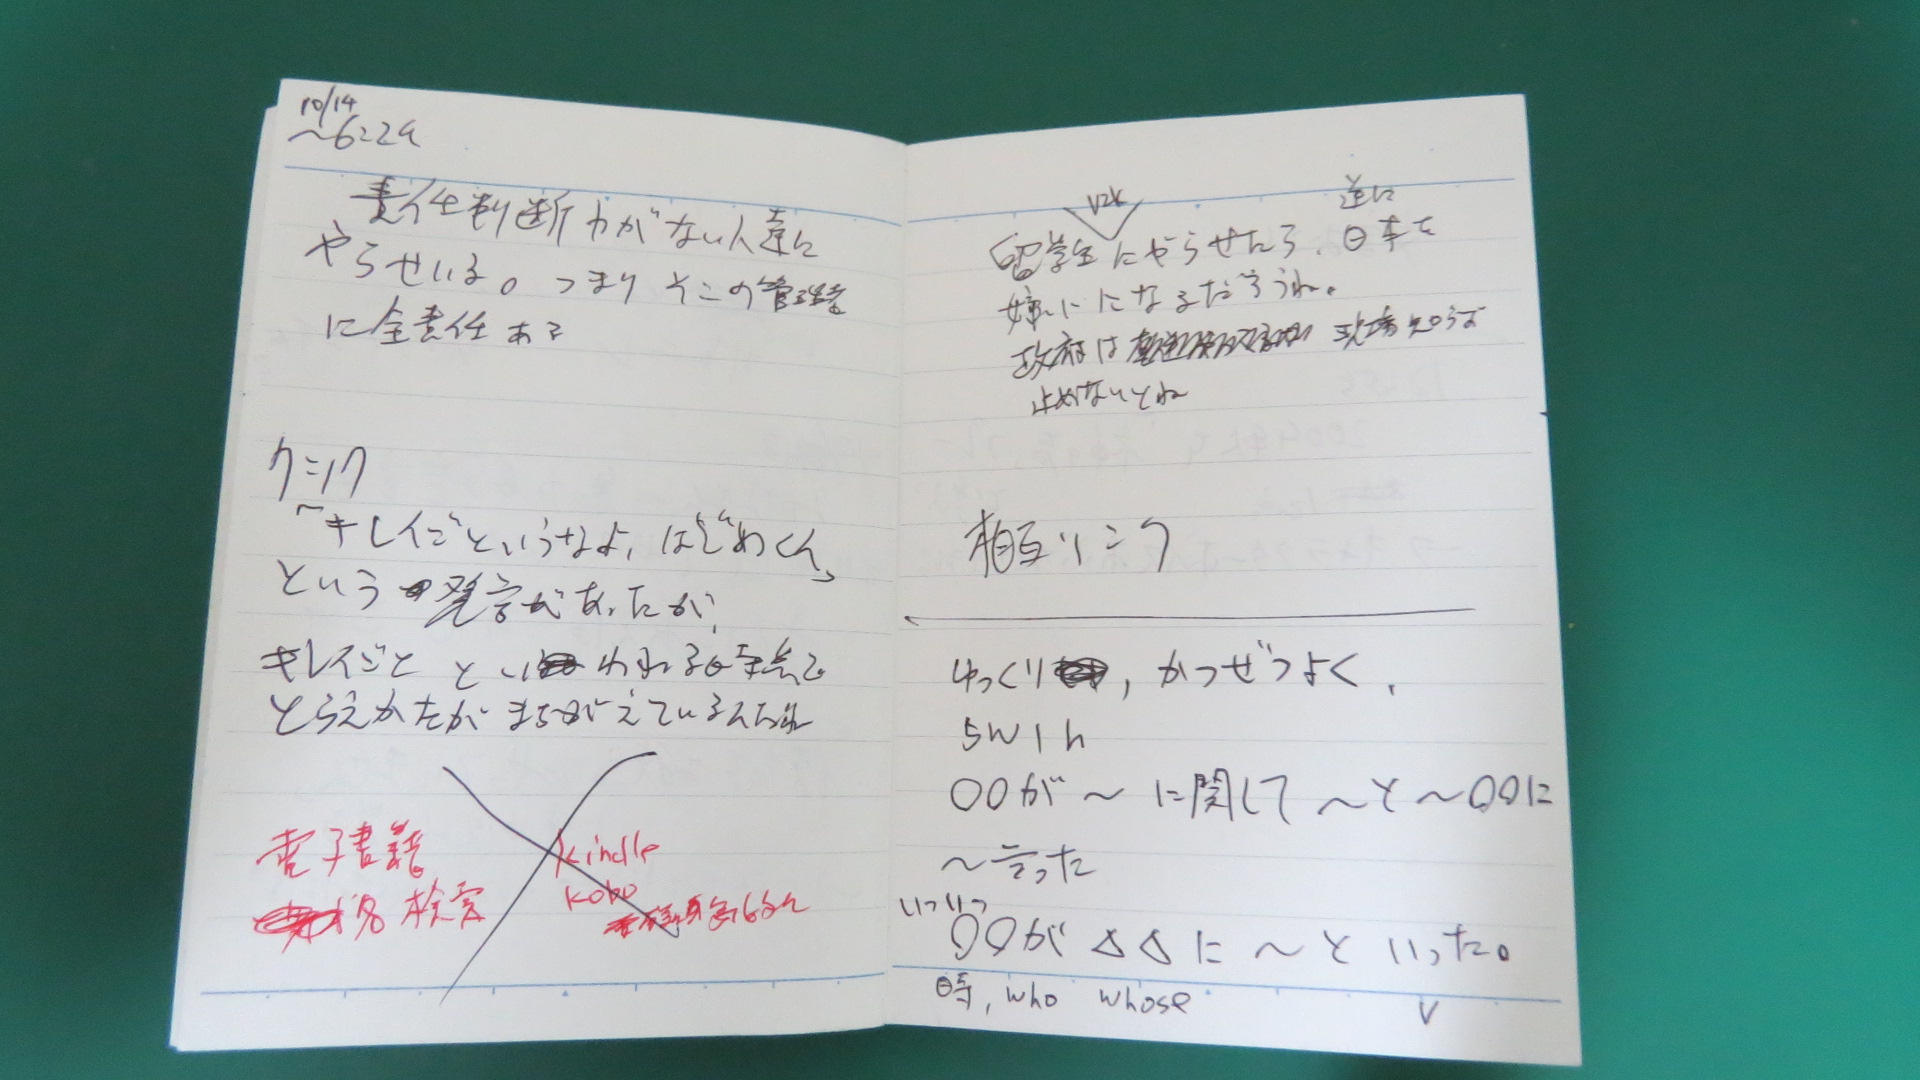 10/14
責任判断力がない人達に
やらせいる。つまりそこの管理者
に全責任ある
クニツク
"キレイごというなよ、はじめくん"
という発言があったが、
キレイごとといわれる時点で
とらえかたがまちがえているんだね
電子書籍
名検索
kindle
kobo
留学生にやらせたら、逆に日本を
嫌いになるだろうね。
政府は現場知らず
止めないとね
相互リンク
ゆっくり、かつぜつよく、
5W1h
〇〇が〜に関して〜と〜〇〇に
〜言った
いついつ
〇〇が△△に〜といった。
時, who whose